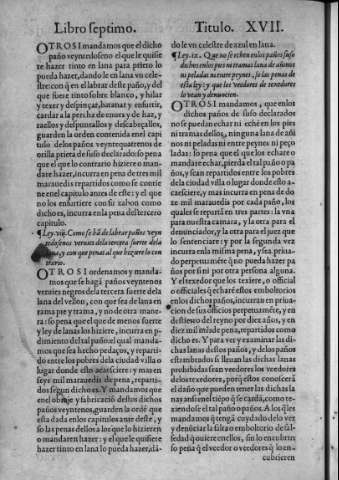 Libro septimo.
OTROSI mandamos que el dicho
paño veynteidoseno el que le quisie
re hazer tinto en lana para prieto lo
pueda hazer, dando le en lana vn cele-
stre con q̃ en el labrar de los paños, y del
que fuere tinto sobre blanco, y hilar
y texer y despinçar, batanar y enfurtir,
cardar a la percha de enues y de haz, y
razllos y despuntallos y descabeçallos,
guarden la orden contenida en el capi
tulo delos paños veyntequatrenos de
orilla prieta de suso declarado: so pena
que el que lo contrario hiziere o man-
dare hazer, incurra en pena de tres mil
marauedis repartidos como se contie
ne en el capitulo antes de este: y el que
no los enfurtiere con su xabon como
dicho es, incurra en la pena del tercero
capitulo.
¶ Ley.viij. Como se hã de labrar paños veyn
tedosenos vervies dela tercera suerte dela
lana, y con que penas al que hiziere lo con
trario.
OTROSI ordenamos y manda-
mos que se hagã paños veyntenos
veruies negros dela tercera suerte dela
lana del vellon, con que sea de lana en
rama pie y trama, y no de otra mane
ra: so pena que el que de menos suerte
y ley de lanas los hiziere, incurra en p̃
dimiento del tal paño: el qual manda-
mos que sea hecho pedaços, y reparti-
do entre los pobres dela ciudad villa o
lugar donde esto acaesciere: y mas en
seys mil marauedis de pena, reparti-
dos segun dicho es. Y mandamos que
en el obraje y fabricacion destos dichos
paños veyntenos, guarden la ordẽ que
esta dada en los capitulos ante deste, y
so las penas dellos alos que lo hizieren
o mandaren hazer: y el que le quisiere
hazer tinto en lana lo pueda hazer, dã-
Titulo. XVII.
do le vn celestre de azul en lana.
¶ Ley.ix. Que no se echen en los paños suso
dichos en los pies ni tramas lanas de añinos
ni peladas ni entre peynes, so las penas de
esta ley: y que los veedores de veedores
lo vean y denuncien.
OTROSI mandamos, que en los
dichos paños de suso declarados
no se puedan echar ni echen en los pies
ni tramas dellos, ninguna lana de añi
nos ni peladas ni entre peynes ni peço
ladas: so pena que el que los echare o
mandare echar, pierda el tal paño o pa
ños, y sean repartidos entre los pobres
dela ciudad villa o lugar donde esto a-
caesciere, y mas incurra en pena de do-
ze mil marauedis por cada paño, los
quales se repartã en tres partes: la vna
para nuestra camara, y la otra para el
denunciador, y la otra para el juez que
lo sentenciare: y por la segunda vez
incurra en la misma pena, y sea priua-
do perpetuamẽte q̃ no pueda hazer pa
ños por si ni por otra persona alguna.
Y el texedor que los texiere, o official
o officiales q̃ echarẽ estos emboltorios
en los dichos paños, incurran en priua-
cion de sus officios perpetuamẽte, y en
destierro del reyno por diez años, y en
diez mil mrs de pena, repartidos como
dicho es. Y para ver y examinar las di-
chas lanas destos paños, y delos paños
estrãbrados si lleuan las dichas lanas
prohibidas sean veedores los veedores
delos texedores, porq̃ estos conoscerã
el daño que pueden tener las dichas la
nas ansi en el tiẽpo q̃ se cardã, como te-
niendose el tal paño o paños. A los q̃les
mandamos q̃ tengã cuydado delo ver
y denũciar la falta o emboltorio de fal-
sedad q̃ ouiere en ellos, sin lo encubrir:
so pena q̃ el veedor o veedores q̃ lo en-
cubrieren